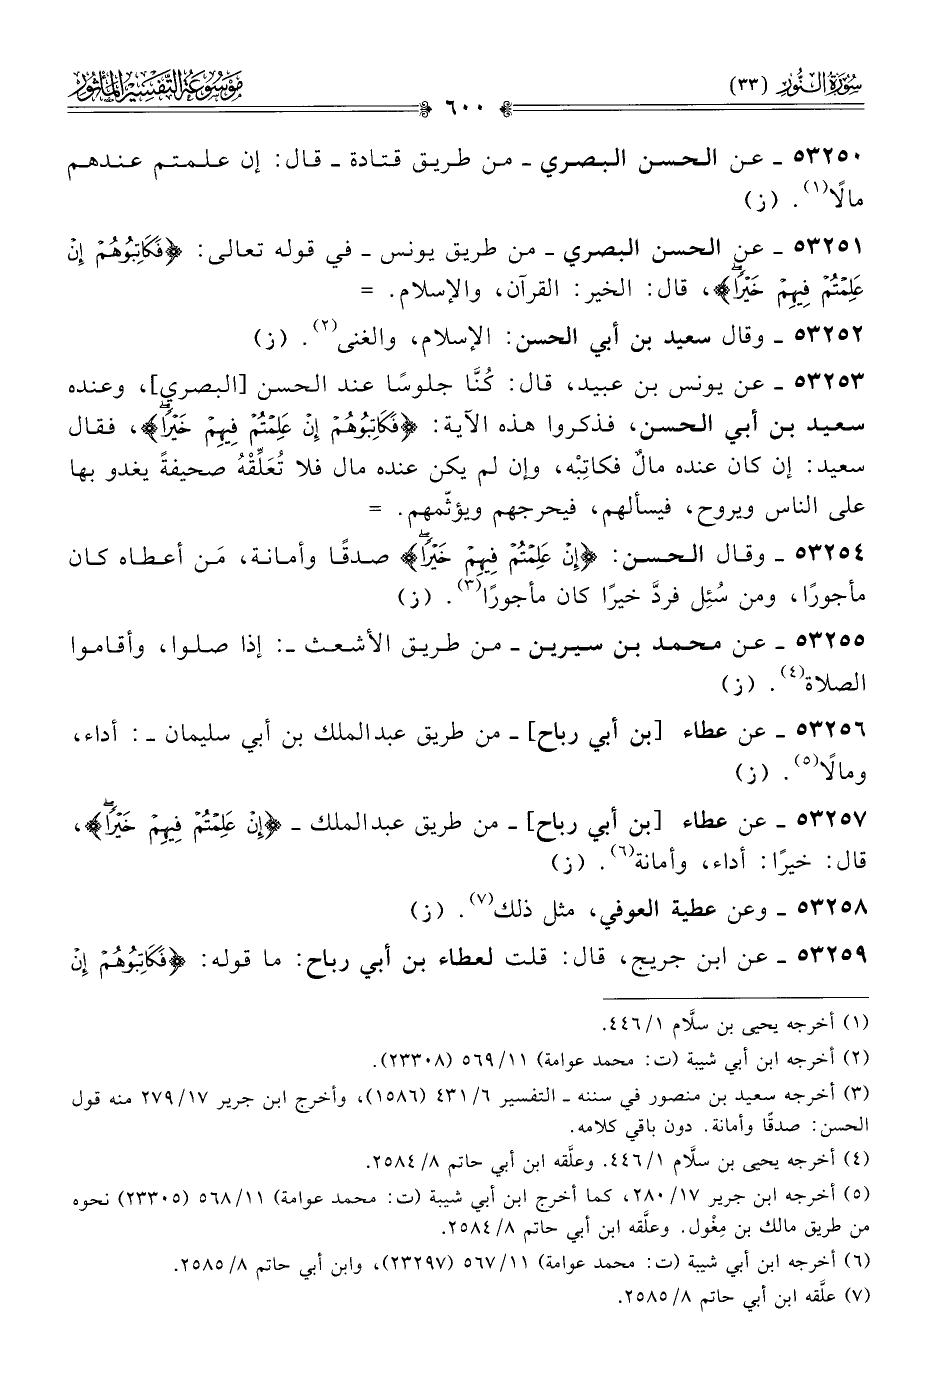 سُورَةُ النُّور (٣٣)
مَوْسُوعَةُ التَّفْسِيرِ المَأْثُور
٦٠٠
٥٣٢٥٠ ـ عن الحسن البصري ـ من طريق قتادة ـ قال: إن علمتم عندهم
مالًا(١). (ز)
٥٣٢٥١ ـ عن الحسن البصري ـ من طريق يونس ـ في قوله تعالى: ﴿فَكَاتِبُوهُمْ إِنْ
عَلِمْتُمْ فِيهِمْ خَيْرًاۖ﴾، قال: الخير: القرآن، والإسلام. =
٥٣٢٥٢ ـ وقال سعيد بن أبي الحسن: الإسلام، والغنى(٢). (ز)
٥٣٢٥٣ ـ عن يونس بن عبيد، قال: كُنَّا جلوسًا عند الحسن [البصري]، وعنده
سعيد بن أبي الحسن، فذكروا هذه الآية: ﴿فَكَاتِبُوهُمْ إِنْ عَلِمْتُمْ فِيهِمْ خَيْرًاۖ﴾، فقال
سعيد: إن كان عنده مالٌ فكاتِبْه، وإن لم يكن عنده مال فلا تُعَلِّقْهُ صحيفةً يغدو بها
على الناس ويروح، فيسألهم، فيحرجهم ويؤثّمهم. =
٥٣٢٥٤ ـ وقال الحسن: ﴿إِنْ عَلِمْتُمْ فِيهِمْ خَيْرًاۖ﴾ صدقًا وأمانة، مَن أعطاه كان
مأجورًا، ومن سُئِل فردَّ خيرًا كان مأجورًا(٣). (ز)
٥٣٢٥٥ ـ عن محمد بن سيرين ـ من طريق الأشعث ـ: إذا صلوا، وأقاموا
الصلاة(٤). (ز)
٥٣٢٥٦ ـ عن عطاء [بن أبي رباح] ـ من طريق عبدالملك بن أبي سليمان ـ: أداء،
ومالًا(٥). (ز)
٥٣٢٥٧ ـ عن عطاء [بن أبي رباح] ـ من طريق عبدالملك ـ ﴿إِنْ عَلِمْتُمْ فِيهِمْ خَيْرًاۖ﴾،
قال: خيرًا: أداء، وأمانة(٦). (ز)
٥٣٢٥٨ ـ وعن عطية العوفي، مثل ذلك(٧). (ز)
٥٣٢٥٩ ـ عن ابن جريج، قال: قلت لعطاء بن أبي رباح: ما قوله: ﴿فَكَاتِبُوهُمْ إِنْ
(١) أخرجه يحيى بن سلَّام ١/ ٤٤٦.
(٢) أخرجه ابن أبي شيبة (ت: محمد عوامة) ١١/ ٥٦٩ (٢٣٣٠٨).
(٣) أخرجه سعيد بن منصور في سننه ـ التفسير ٦/ ٤٣١ (١٥٨٦)، وأخرج ابن جرير ١٧/ ٢٧٩ منه قول
الحسن: صدقًا وأمانة. دون باقي كلامه.
(٤) أخرجه يحيى بن سلَّام ١/ ٤٤٦. وعلَّقه ابن أبي حاتم ٨/ ٢٥٨٤.
(٥) أخرجه ابن جرير ١٧/ ٢٨٠، كما أخرج ابن أبي شيبة (ت: محمد عوامة) ١١/ ٥٦٨ (٢٣٣٠٥) نحوه
من طريق مالك بن مِغْول. وعلَّقه ابن أبي حاتم ٨/ ٢٥٨٤.
(٦) أخرجه ابن أبي شيبة (ت: محمد عوامة) ١١/ ٥٦٧ (٢٣٢٩٧)، وابن أبي حاتم ٨/ ٢٥٨٥.
(٧) علَّقه ابن أبي حاتم ٨/ ٢٥٨٥.